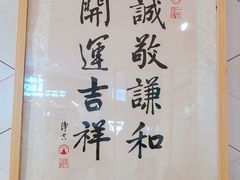 誠敬謙和
開運吉祥